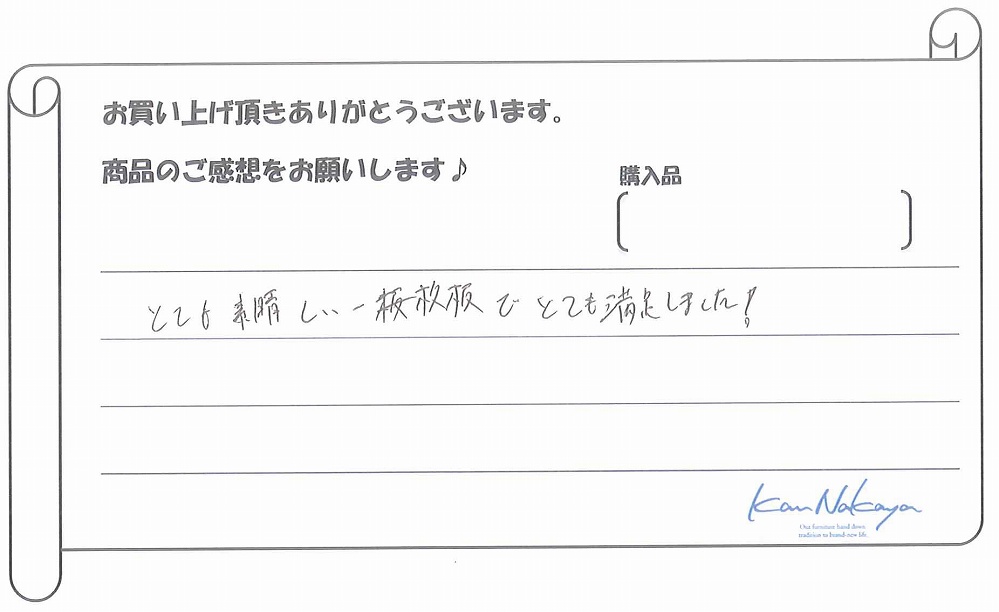 お買い上げ頂きありがとうございます。
商品のご感想をお願いします♪
購入品
とても素晴しい一板枚板でとても満足しました!
Kan Nakaya
Our furniture hand down
tradition to brand-new life.